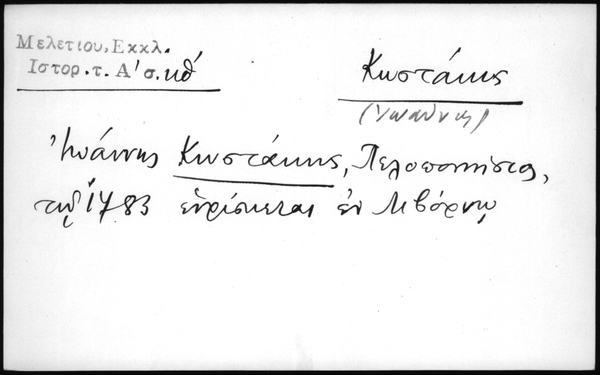 Μελετίου, Εκκλ.
Ιστορ. τ. Α' σ. κθ'
Κωστάκης
(Ἰωάννης)
Ἰωάννης Κωστάκης, Πελοποννήσιος,
τῷ 1783 εὑρίσκεται ἐν Λιβόρνῳ